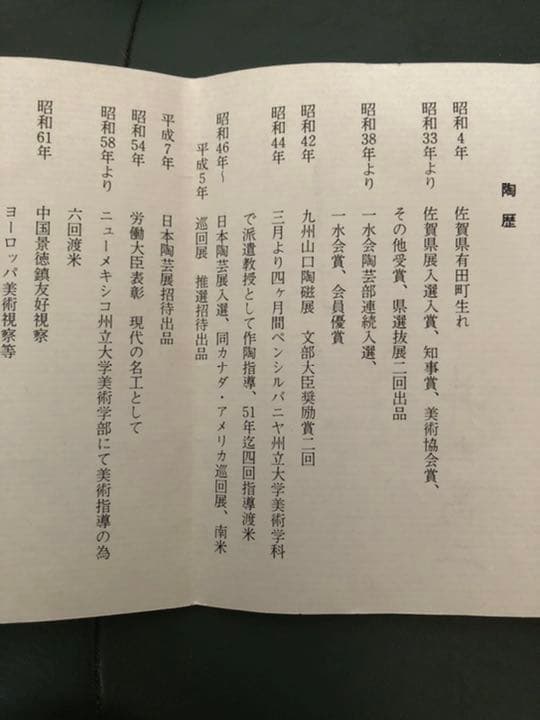 陶歴
昭和4年　佐賀県有田町生れ
昭和33年より　佐賀県展入選入賞、知事賞、美術協会賞、
その他受賞、県選抜展二回出品
昭和38年より　一水会陶芸部連続入選、
一水会賞、会員優賞
昭和42年　九州山口陶磁展　文部大臣奨励賞二回
昭和44年　三月より四ヶ月間ペンシルバニヤ州立大学美術学科
で派遣教授として作陶指導、51年迄四回指導渡米
昭和46年〜　日本陶芸展入選、同カナダ・アメリカ巡回展、南米
平成5年　巡回展　推選招待出品
平成7年　日本陶芸展招待出品
昭和54年　労働大臣表彰　現代の名工として
昭和58年より　ニューメキシコ州立大学美術学部にて美術指導の為
六回渡米
昭和61年　中国景徳鎮友好視察
ヨーロッパ美術視察等